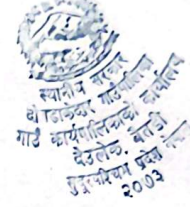 स्थानीय सरकार
दोगडाकेदार गाउँपालिका
गाउँ कार्यपालिकाको कार्यालय
देउलेक, बैतडी
सुदूरपश्चिम प्रदेश
२००३